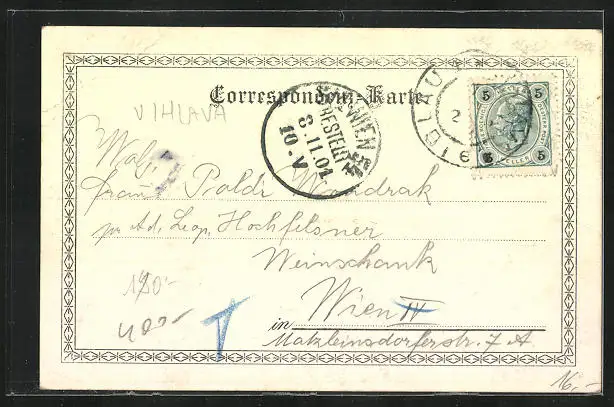 Correspondenz-Karte.
V IHLAVA
IGLAU
5 5
HELLER
5 5
WIEN
BESTELLT
8.11.01
10-V
Wolg.
Frau Poldi Wondrak
pr Ad. Leop. Hochfelsner
Weinschank
Wien IV
in Matzleinsdorferstr. 7 A
180-
400-
T
16,-